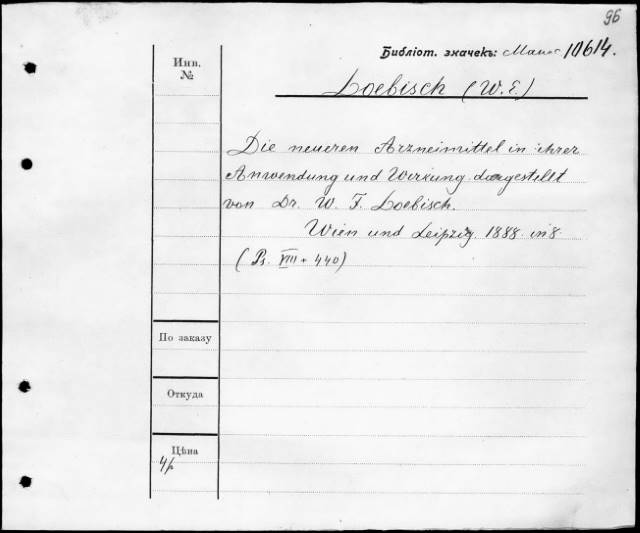 96
Библіот. значекъ: 10614.
Инв.
№
Loebisch (W. E.)
Die neueren Arzneimittel in ihrer
Anwendung und Wirkung dargestellt
von Dr. W. F. Loebisch.
Wien und Leipzig. 1888. in 8.
(Ps. VIII + 440)
По заказу
Откуда
Цѣна
4р